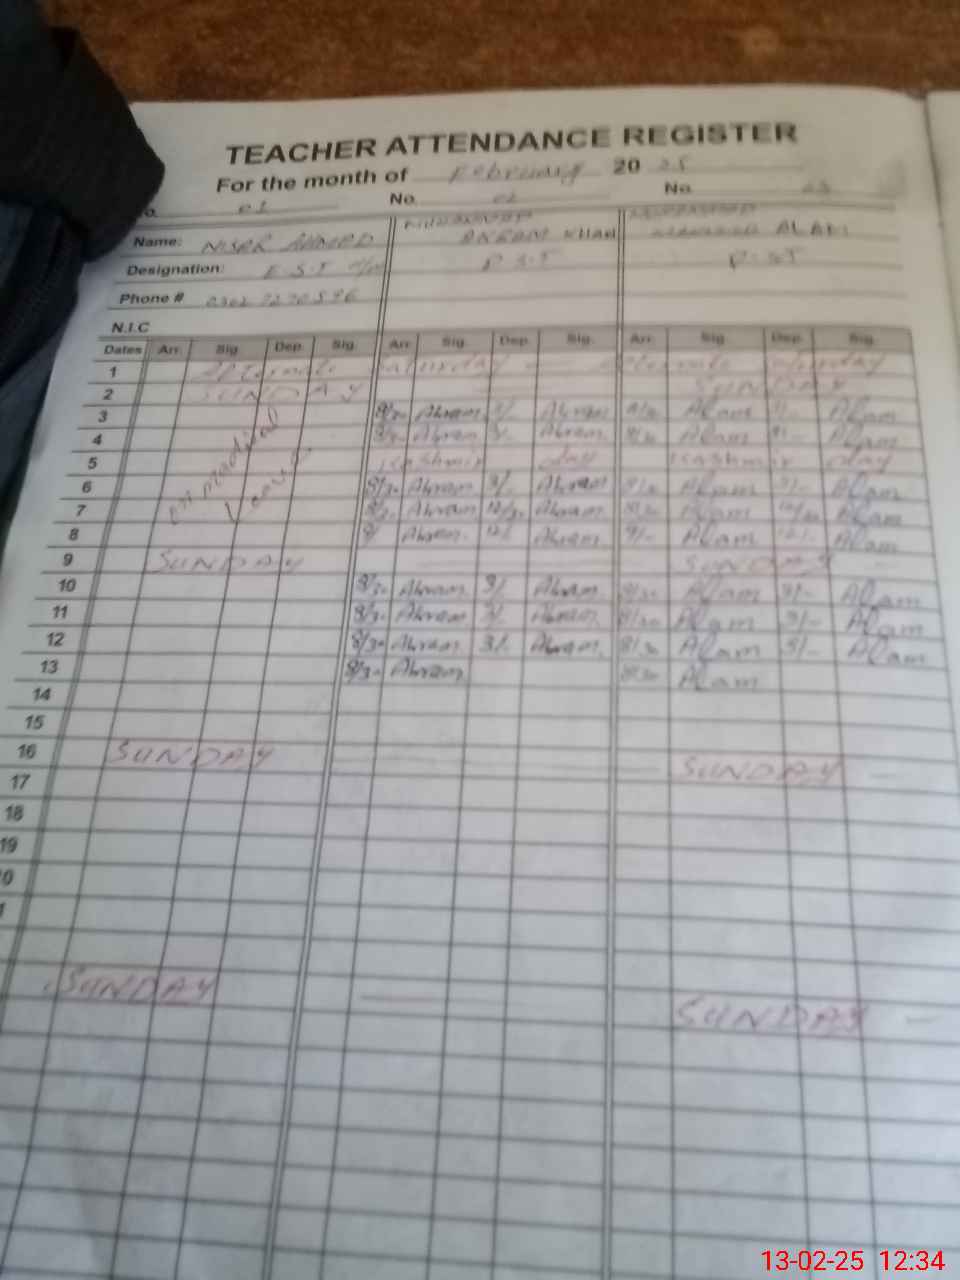 TEACHER ATTENDANCE REGISTER
For the month of February 20 25
No. 01 No. 02 No. 03
Name: NISAR AHMED MUHAMMAD AKRAM KHAN MUHAMMAD ALAM
Designation: E.S.T P.S.T P.ST
Phone #
N.I.C
Dates Arr. Sig. Dep. Sig. Arr. Sig. Dep. Sig. Arr. Sig. Dep. Sig.
1 Alternate Saturday - Alternate Saturday
2 SUNDAY SUNDAY
3 8/30 Akram 3/- Akram 8/30 Alam 3/- Alam
4 8/30 Akram 3/- Akram 8/30 Alam 3/- Alam
on madical Leave
5 Kashmir day Kashmir day
6 8/30 Akram 3/- Akram 8/30 Alam 3/- Alam
7 8/30 Akram 12/30 Akram 8/30 Alam 12/30 Alam
8 Akram 12/- Akram 9/- Alam 12/- Alam
9 SUNDAY SUNDAY
10 8/30 Akram 3/- Akram 8/30 Alam 3/- Alam
11 8/30 Akram 3/- Akram 8/30 Alam 3/- Alam
12 8/30 Akram 3/- Akram 8/30 Alam 3/- Alam
13 8/30 Akram 8/30 Alam
14
15
16 SUNDAY SUNDAY
17
18
19
0
1
SUNDAY SUNDAY -
13-02-25 12:34